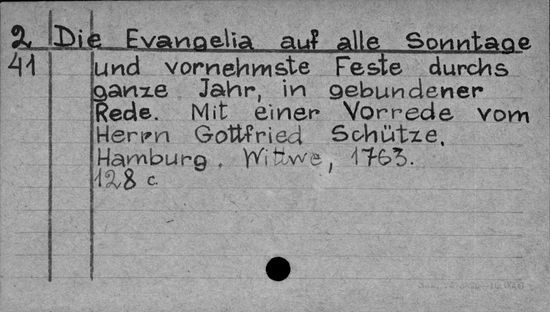 2 Die Evangelia auf alle Sonntage
41 und vornehmste Feste durchs
ganze Jahr, in gebundener
Rede. Mit einer Vorrede vom
Herrn Gottfried Schütze.
Hamburg. Wittwe, 1763.
128 c.